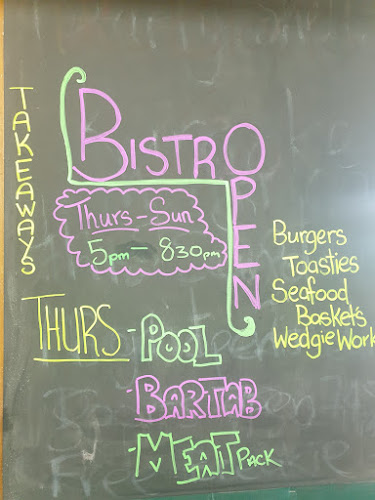 TAKEAWAYS
BISTRO
OPEN
Thurs - Sun
5pm - 830pm
Burgers
Toasties
Seafood
Baskets
Wedgie Work
THURS - POOL
- BARTAB
- MEAT PACK